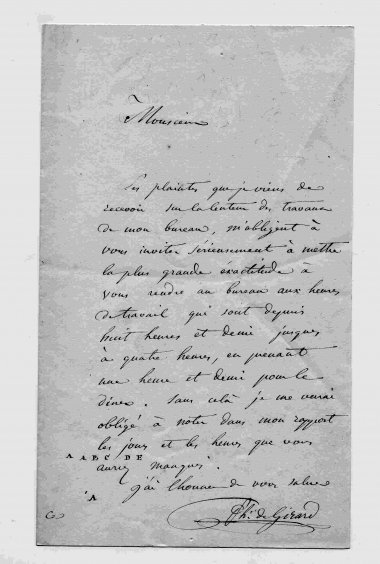 Monsieur
Les plaintes que je viens de
recevoir sur la lenteur des travaux
de mon bureau, m'obligent à
vous inviter sérieusement à mettre
la plus grande éxactitude à
vous rendre au bureau aux heures
de travail qui sont depuis
huit heures et demi jusques
à quatre heures, en prenant
une heure et demi pour le
diner. Sans celà je me verai
obligé à noter dans mon rapport
les jours et les heures que vous
A ABC DE
auriez manqués.
j'ai l'honneur de vous saluer
A
Ph. de Girard